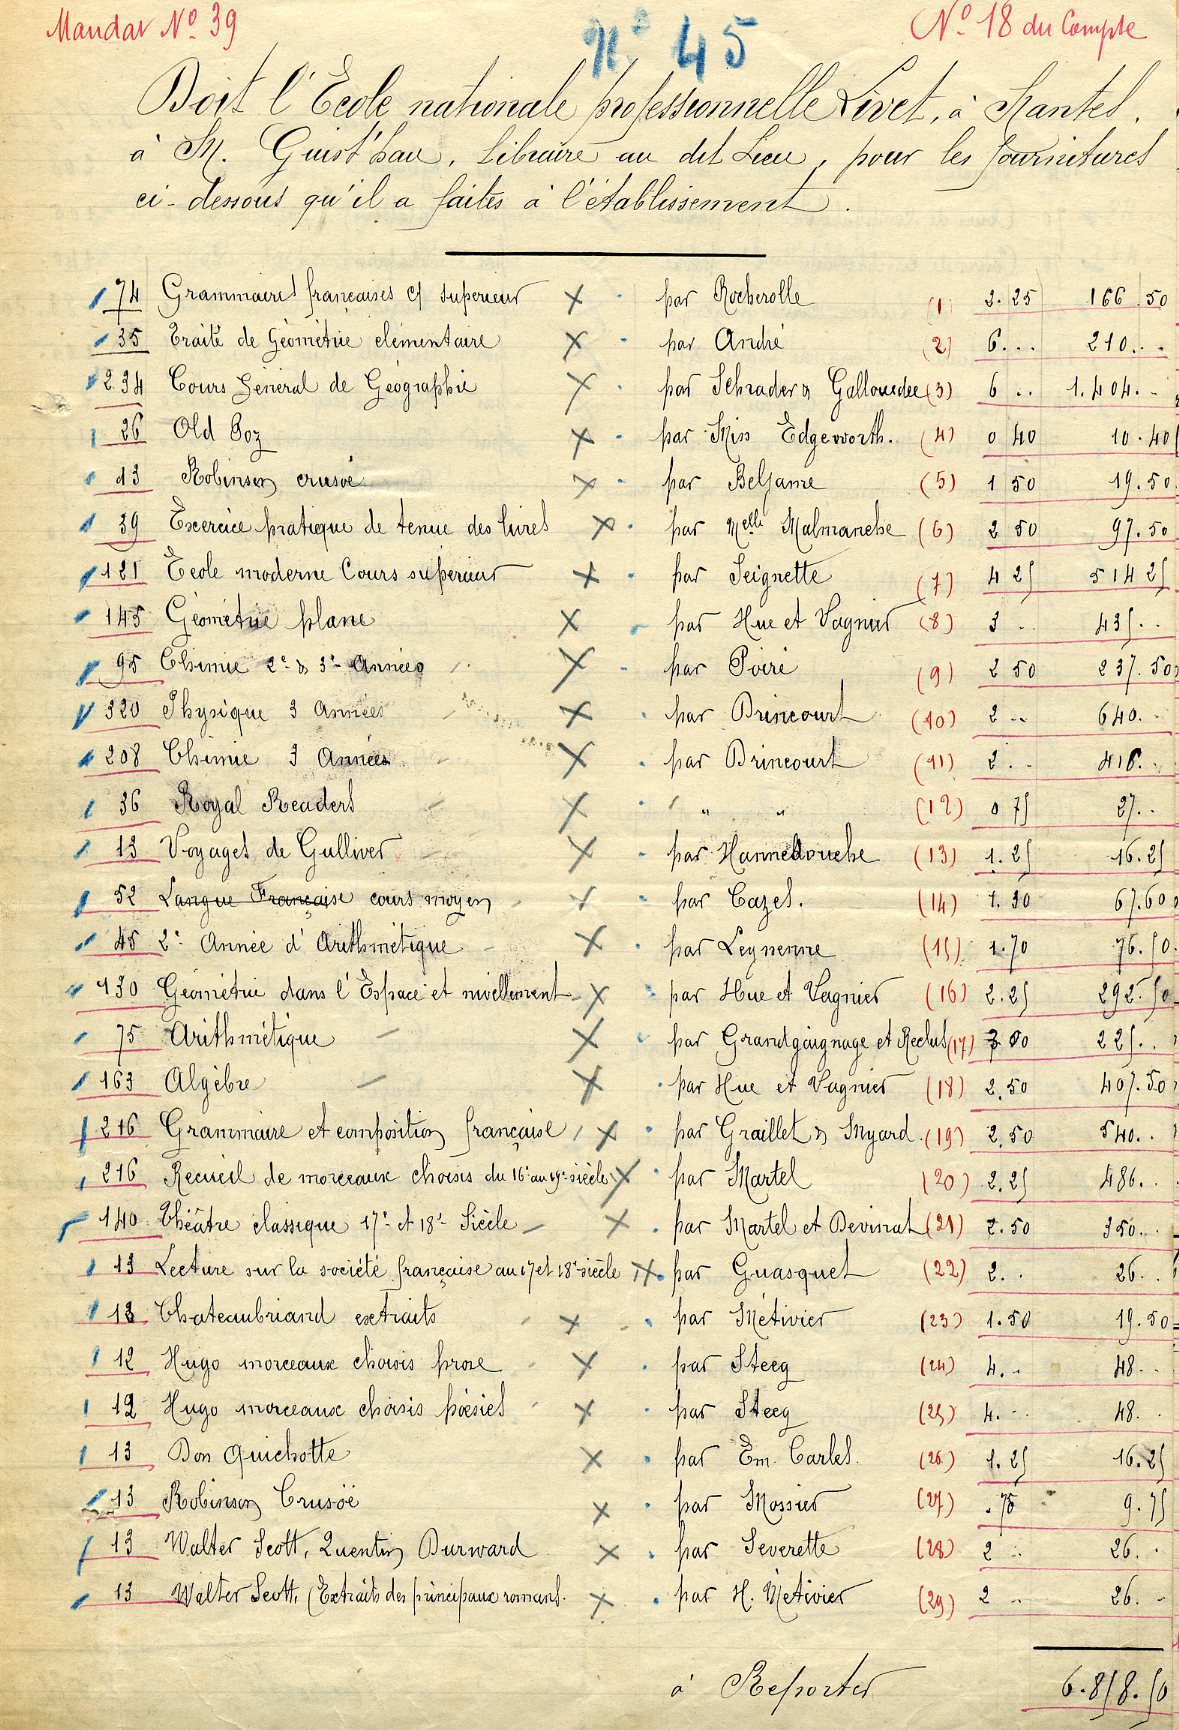 Mandat N° 39
N° 45
N° 18 du Compte
Doit l'Ecole nationale professionnelle Livet, à Nantes,
à M. Guist'hau, libraire au dit Lieu, pour les fournitures
ci-dessous qu'il a faites à l'établissement.
74 Grammaires françaises C supérieur par Rocherolle (1) 2.25 166 50
35 Traité de Géométrie élémentaire par André (2) 6... 210...
234 Cours Général de Géographie par Schrader & Gallouedec (3) 6 .. 1.404. -
26 Old Poz par Miss Edgeworth. (4) 0 40 10.40
13 Robinson crusoé par Beljame (5) 1 50 19.50
39 Exercice pratique de tenue des livres par Melle Malmanche (6) 2 50 97.50
121 Ecole moderne Cours supérieur par Seignette (7) 4 25 514 25
145 Géométrie plane par Hue et Vagnier (8) 3 - 435..
95 Chimie 2e & 3e Années par Poiré (9) 2 50 237.50
320 Physique 3 Années par Drincourt (10) 2 .. 640. -
208 Chimie 3 Années par Drincourt (11) 2 . . 416. .
36 Royal Readers " " (12) 0 75 27. .
13 Voyages de Gulliver par Hannedouche (13) 1.25 16.25
52 Langue Française cours moyen par Cazes. (14) 1.30 67.60
45 2e Année d'Arithmétique par Leyssenne (15) 1.70 76.50
130 Géométrie dans l'Espace et nivellement par Hue et Vagnier (16) 2.25 292.50
75 Arithmétique par Grandgaignage et Reclus (17) 3.00 225..
163 Algèbre par Hue et Vagnier (18) 2.50 407.50
216 Grammaire et composition française par Graillet & Myard. (19) 2.50 540..
216 Recueil de morceaux choisis du 16e au 19e siècle par Martel (20) 2.25 486. .
140 Théâtre classique 17e et 18e Siècle par Martel et Devinat (21) 2.50 350. .
13 Lecture sur la société française au 17 et 18e siècle par Guasquet (22) 2. . 26. .
13 Chateaubriand extraits par Métivier (23) 1.50 19.50
12 Hugo morceaux choisis prose par Steeg (24) 4. - 48. .
12 Hugo morceaux choisis poésies par Steeg (25) 4. - 48. .
13 Don Quichotte par Em. Carles. (26) 1.25 16.25
13 Robinson Crusöé par Mossier (27) .75 9.75
13 Walter Scott, Quentin Durward par Severette (28) 2 .. 26. .
13 Walter Scott, (Extraits des principaux romans. par H. Métivier (29) 2 .. 26. -
à Reporter 6.858.50